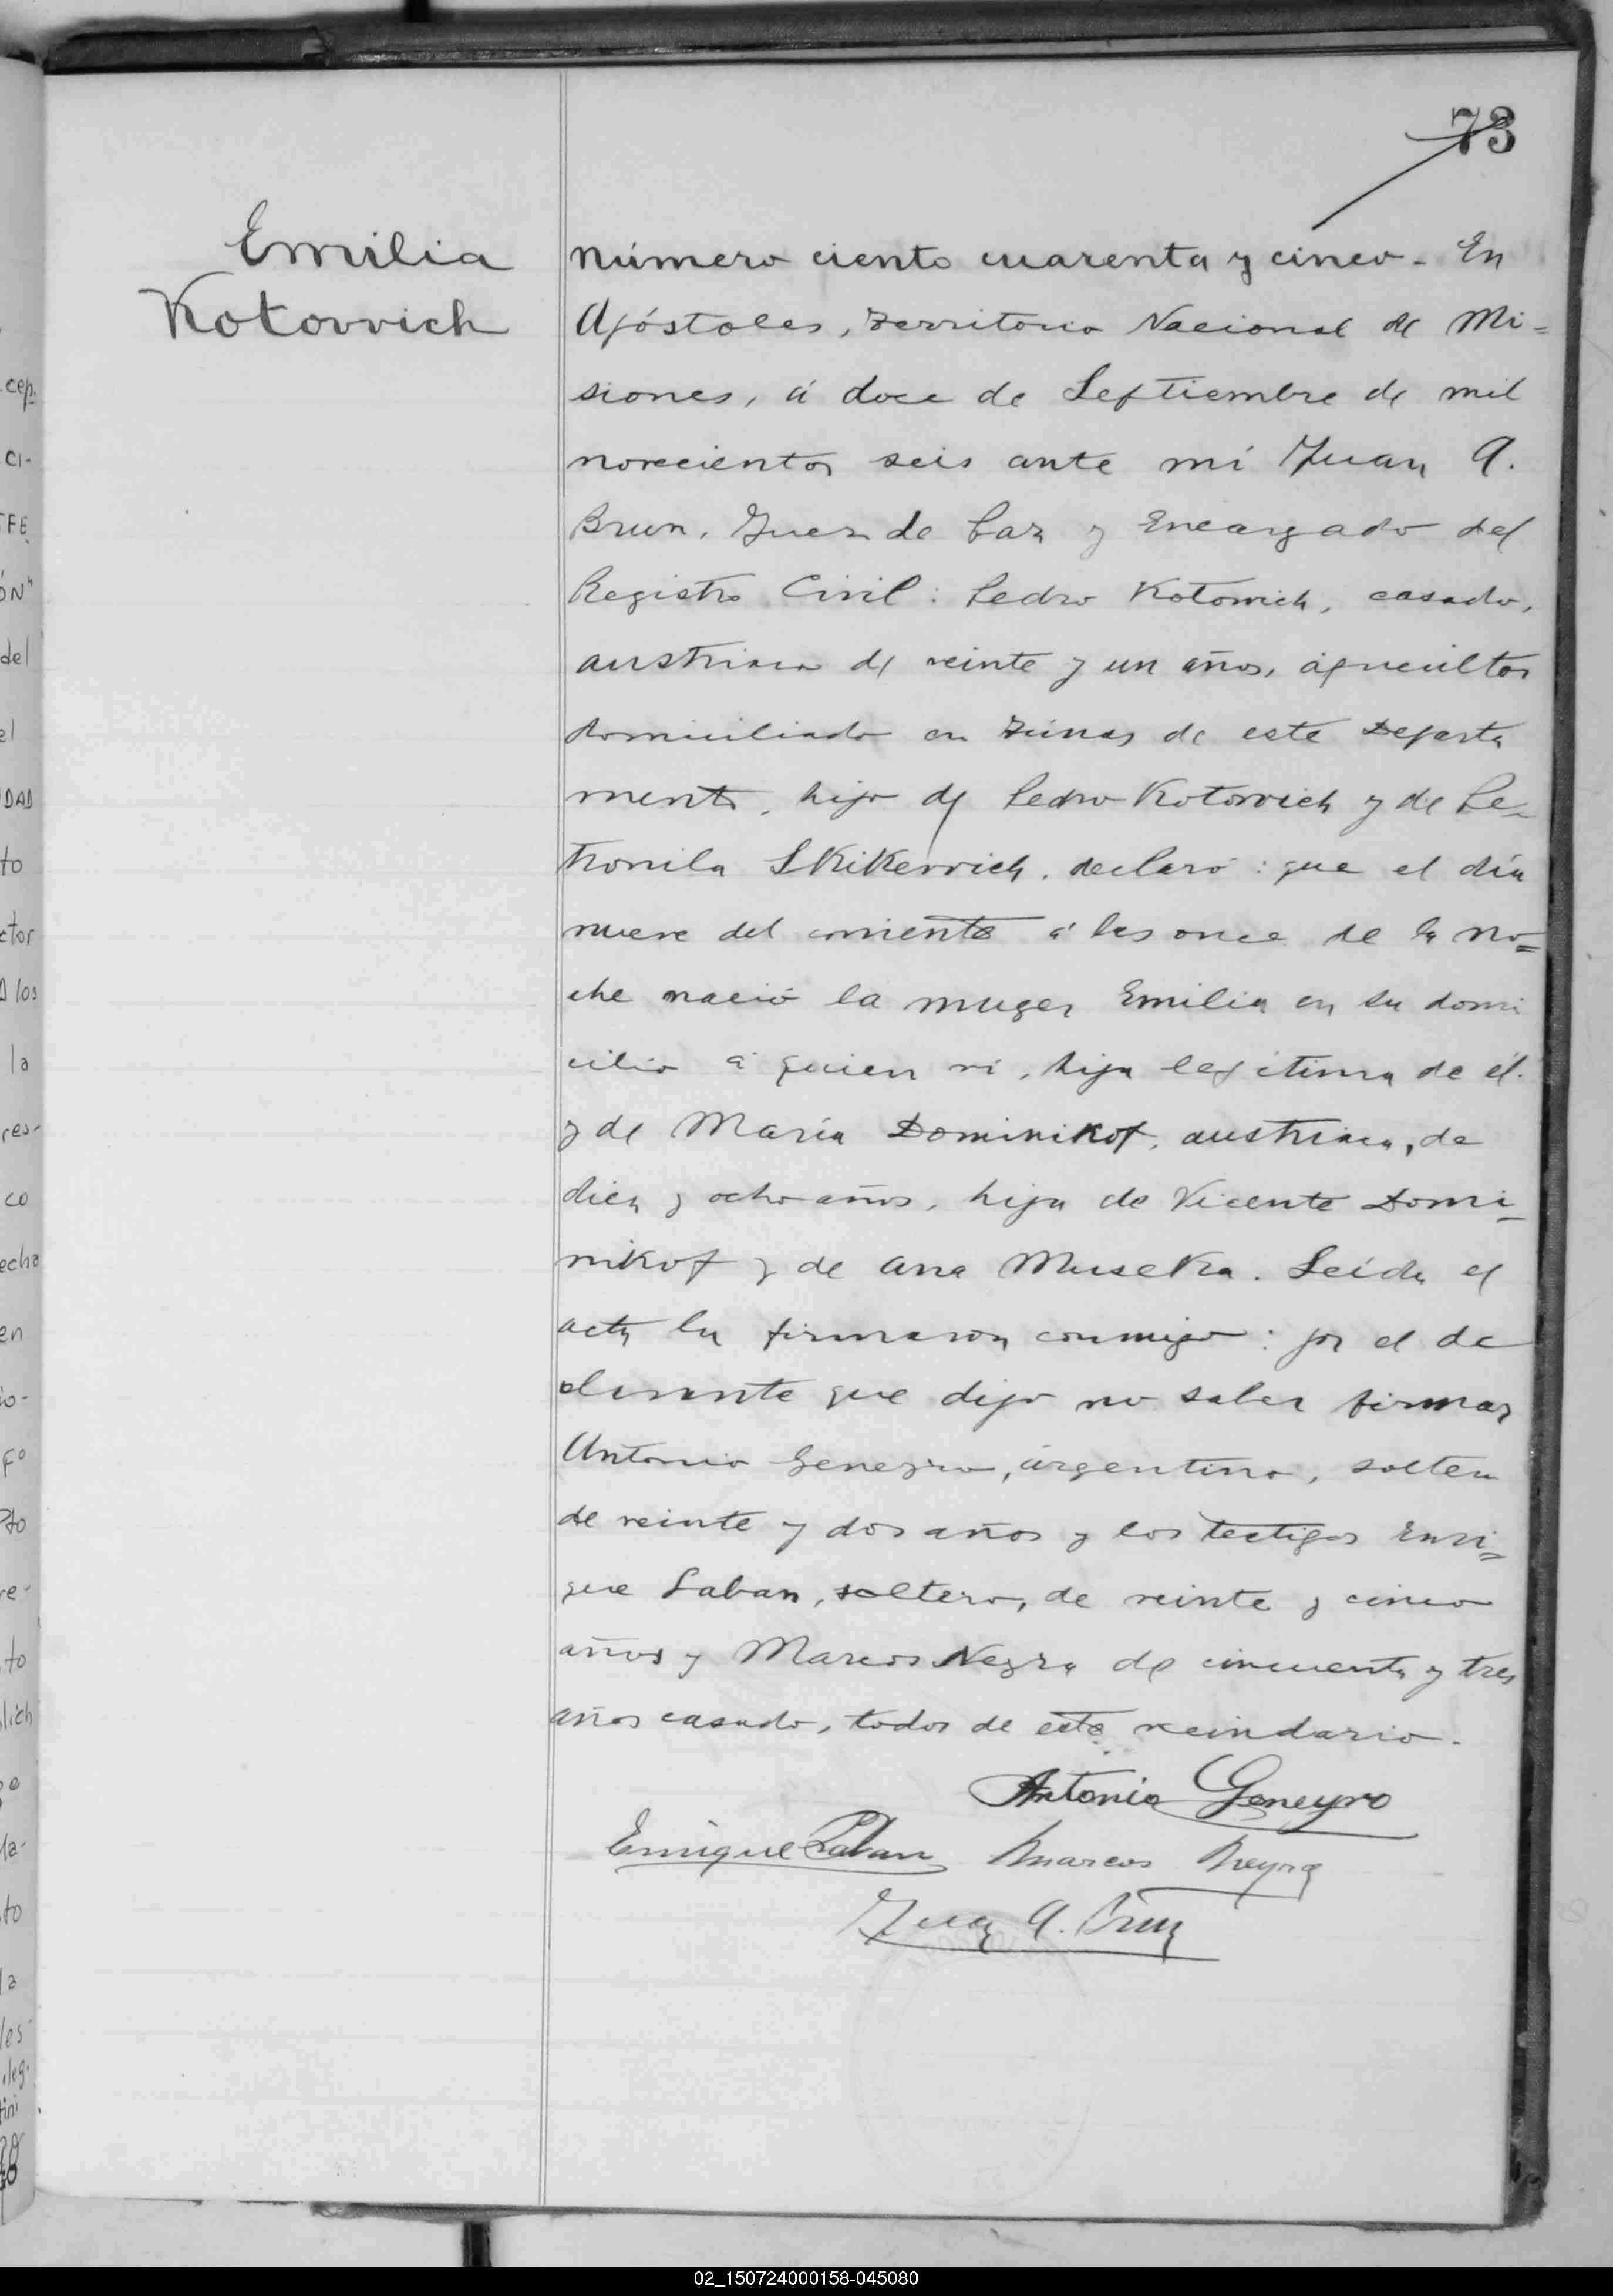 73
Emilia
Kotovvich
número ciento cuarenta y cinco. En
Apóstoles, Territorio Nacional de Mi=
siones, á doce de Septiembre de mil
novecientos seis ante mí Juan A.
Brun, Juez de Paz y Encargado del
Registro Civil: Pedro Kotovvich, casado,
austriaco de veinte y un años, agricultor
domiciliado en de este Departa
mento, hijo de Pedro Kotovvich y de Pe-
tronila Skikevvich, declaró: que el día
nueve del corriente á las once de la no=
che nació la muger Emilia en su domi
cilio á quien vi, hija legitima de él
y de María Dominikof, austriaca, de
diez y ocho años, hija de Vicente Domi-
nikof y de Ana Museka. Leida el
acta la firmaron conmigo: por el de
clarante que dijo no saber firmar
Antonio Geneyro, argentino, soltero
de veinte y dos años y los testigos Enri=
que Laban, soltero, de veinte y cinco
años y Marcos Neyra de cincuenta y tres
años casado, todos de este vecindario.
Antonio Geneyro
Enrique Laban Marcos Neyra
Juan A. Brun
cep.
CI-
FE
ÓN"
del
el
DAD
to
ctor
los
la
res-
co
echa
en
io-
Fº
Pto
re-
to
lich
la-
to
la
les-
02_150724000158-045080